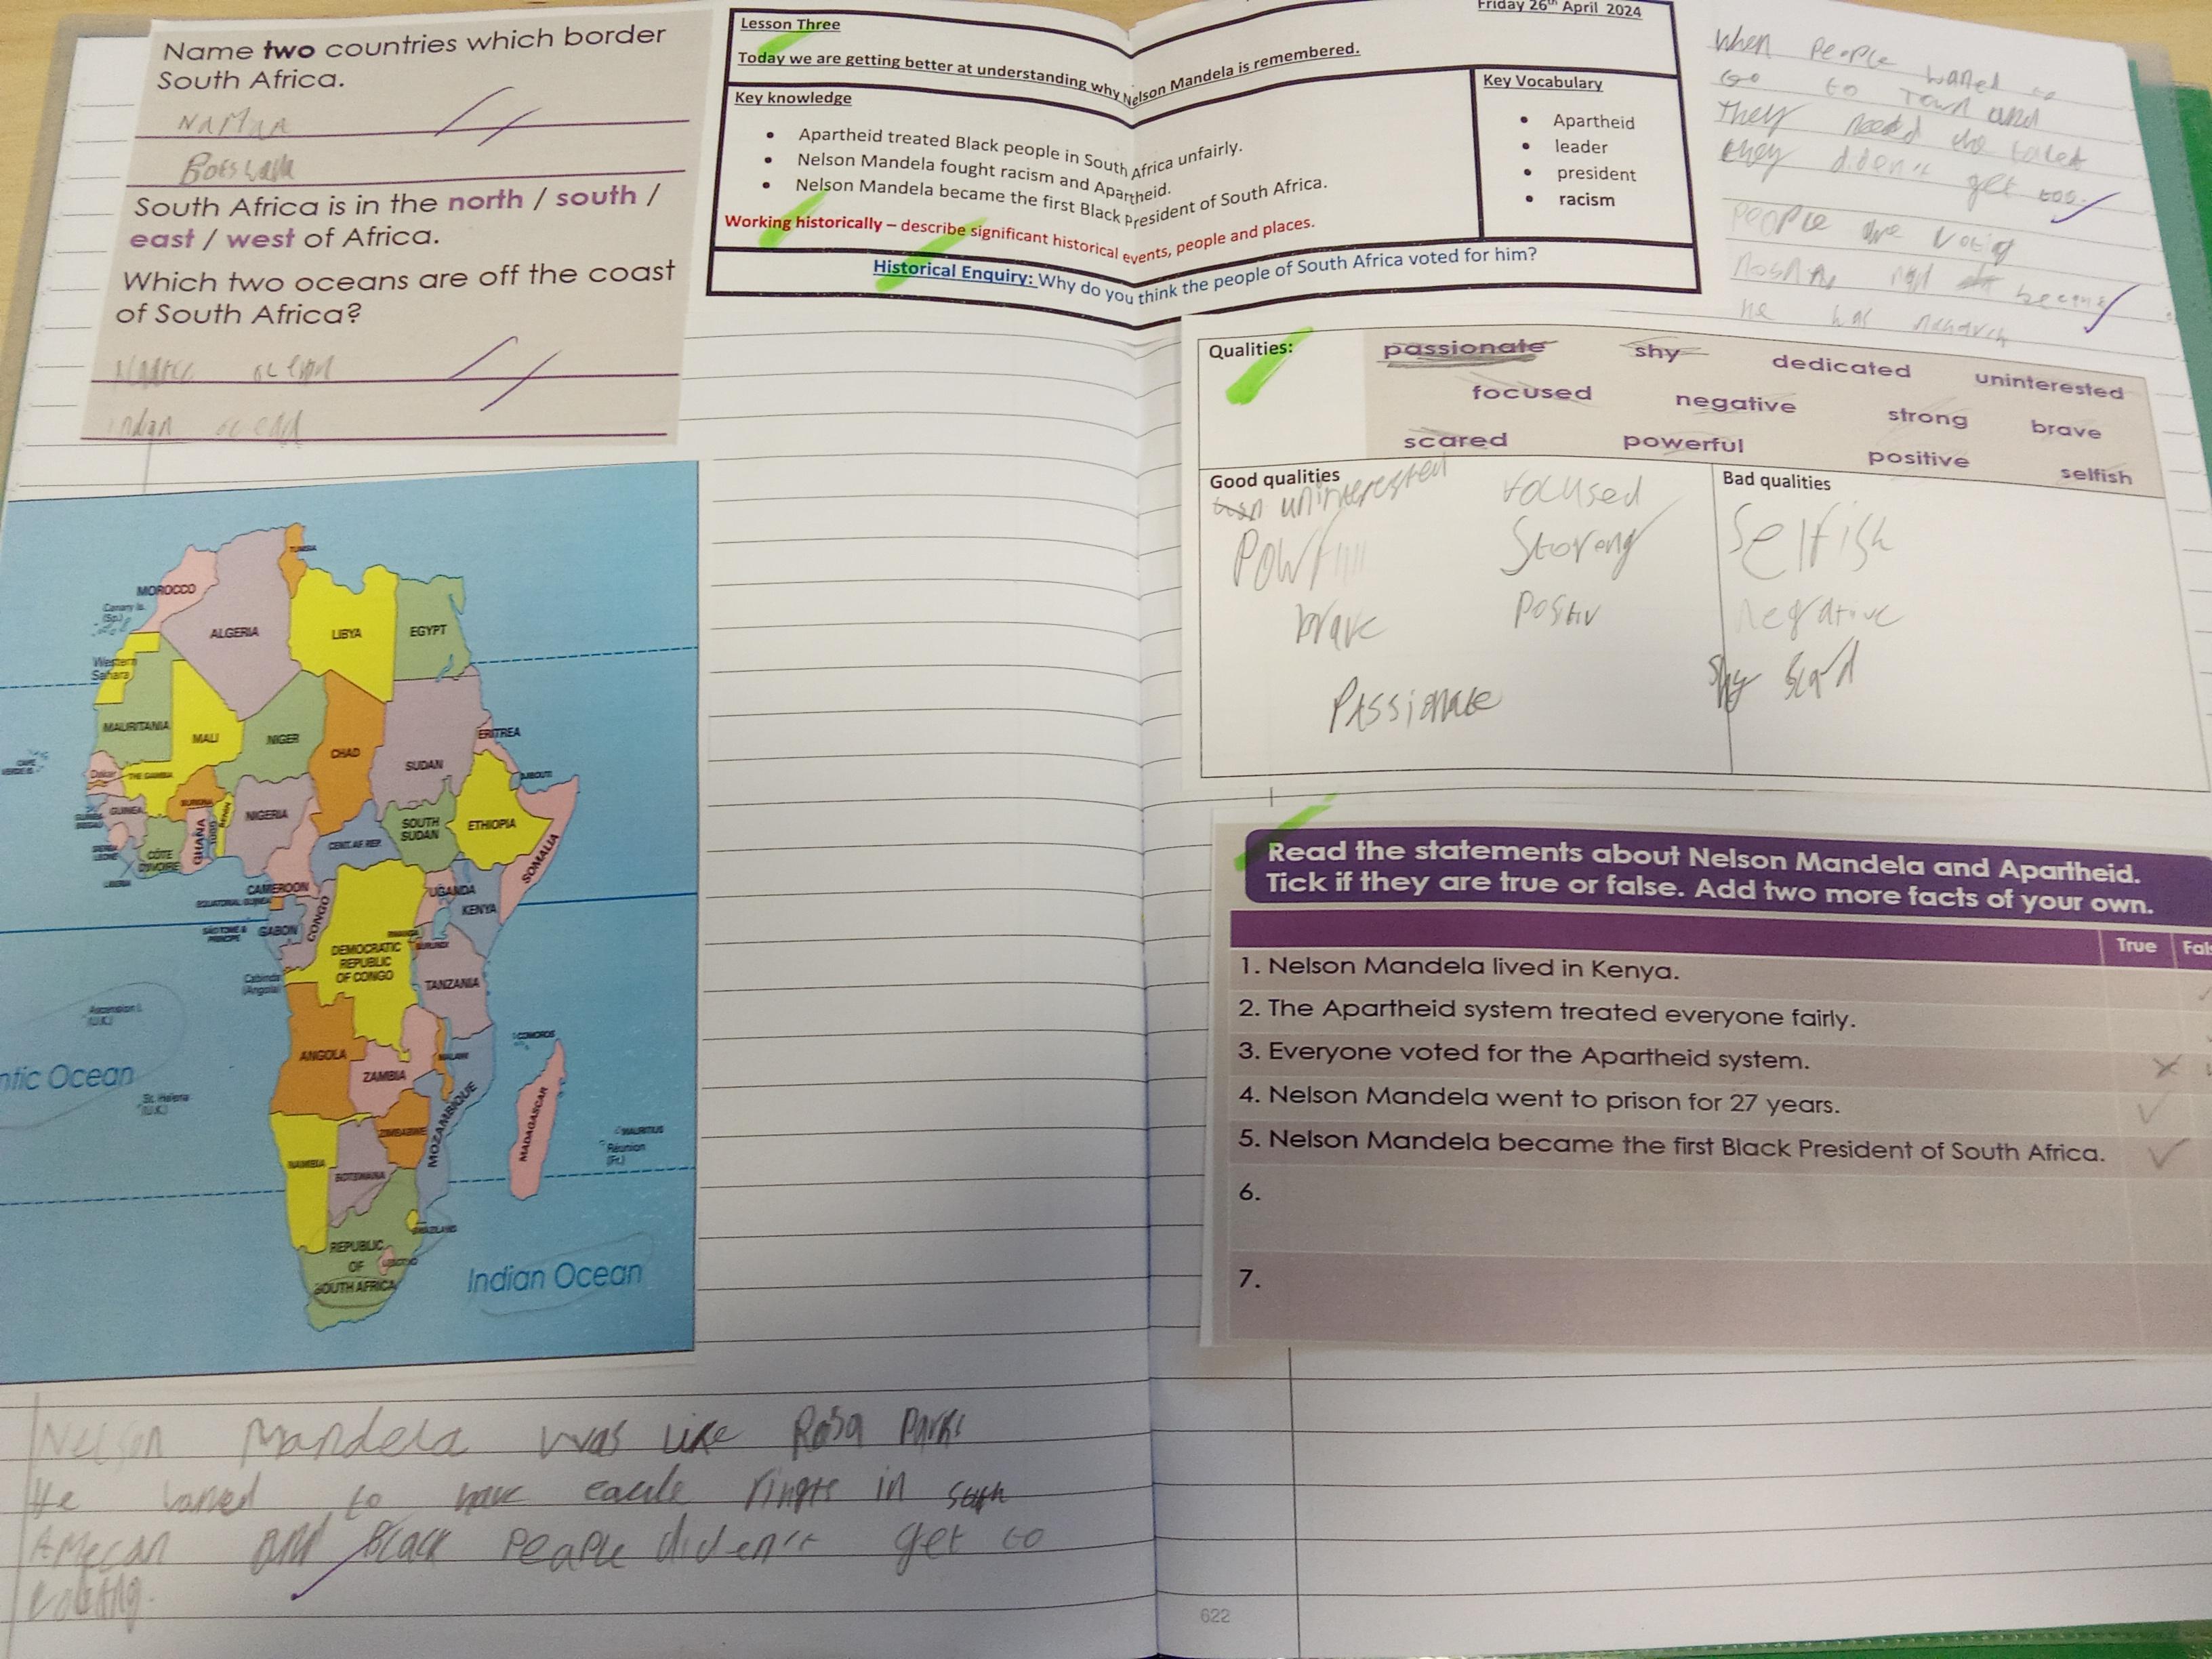 Name two countries which border
South Africa.
South Africa is in the north / south /
east / west of Africa.
Which two oceans are off the coast
of South Africa?
indian
MOROCCO
TUNISIA
ALGERIA
LIBYA
EGYPT
Canary Is.
(Sp.)
Western
Sahara
MAURITANIA
MALI
NIGER
CHAD
SUDAN
ERITREA
DJIBOUTI
Dakar
THE GAMBIA
GUINEA
BURKINA
BENIN
NIGERIA
GHANA
TOGO
CÔTE
D'IVOIRE
SIERRA
LEONE
LIBERIA
CENT. AF. REP.
SOUTH
SUDAN
ETHIOPIA
SOMALIA
CAMEROON
EQUATORIAL GUINEA
SÃO TOMÉ &
PRINCIPE
GABON
CONGO
UGANDA
KENYA
RWANDA
BURUNDI
DEMOCRATIC
REPUBLIC
OF CONGO
Cabinda
(Angola)
TANZANIA
Ascension I.
(U.K.)
COMOROS
ANGOLA
ZAMBIA
MALAWI
ntic Ocean
St. Helena
(U.K.)
ZIMBABWE
MOZAMBIQUE
MADAGASCAR
MAURITIUS
Réunion
(Fr.)
NAMIBIA
BOTSWANA
SWAZILAND
REPUBLIC
OF
SOUTH AFRICA
LESOTHO
Indian Ocean
Nelson Mandela was like Rosa Parks
He waned to have eaule ringts in
and Black People diden't get to
Lesson Three
Friday 26th April 2024
Today we are getting better at understanding why Nelson Mandela is remembered.
Key knowledge
• Apartheid treated Black people in South Africa unfairly.
• Nelson Mandela fought racism and Apartheid.
• Nelson Mandela became the first Black President of South Africa.
Working historically – describe significant historical events, people and places.
Key Vocabulary
• Apartheid
• leader
• president
• racism
Historical Enquiry: Why do you think the people of South Africa voted for him?
When People waned to
Go to Town and
They need the
they diden't get
People are
he has
Qualities:
passionate shy dedicated uninterested
focused negative strong brave
scared powerful positive selfish
Good qualities
uninterested focused
Storeng
brave Positiv
Passionate
Bad qualities
Selfish
negrative
Shy Scard
Read the statements about Nelson Mandela and Apartheid.
Tick if they are true or false. Add two more facts of your own.
True Fals
1. Nelson Mandela lived in Kenya.
2. The Apartheid system treated everyone fairly.
3. Everyone voted for the Apartheid system.
4. Nelson Mandela went to prison for 27 years.
5. Nelson Mandela became the first Black President of South Africa.
6.
7.
622